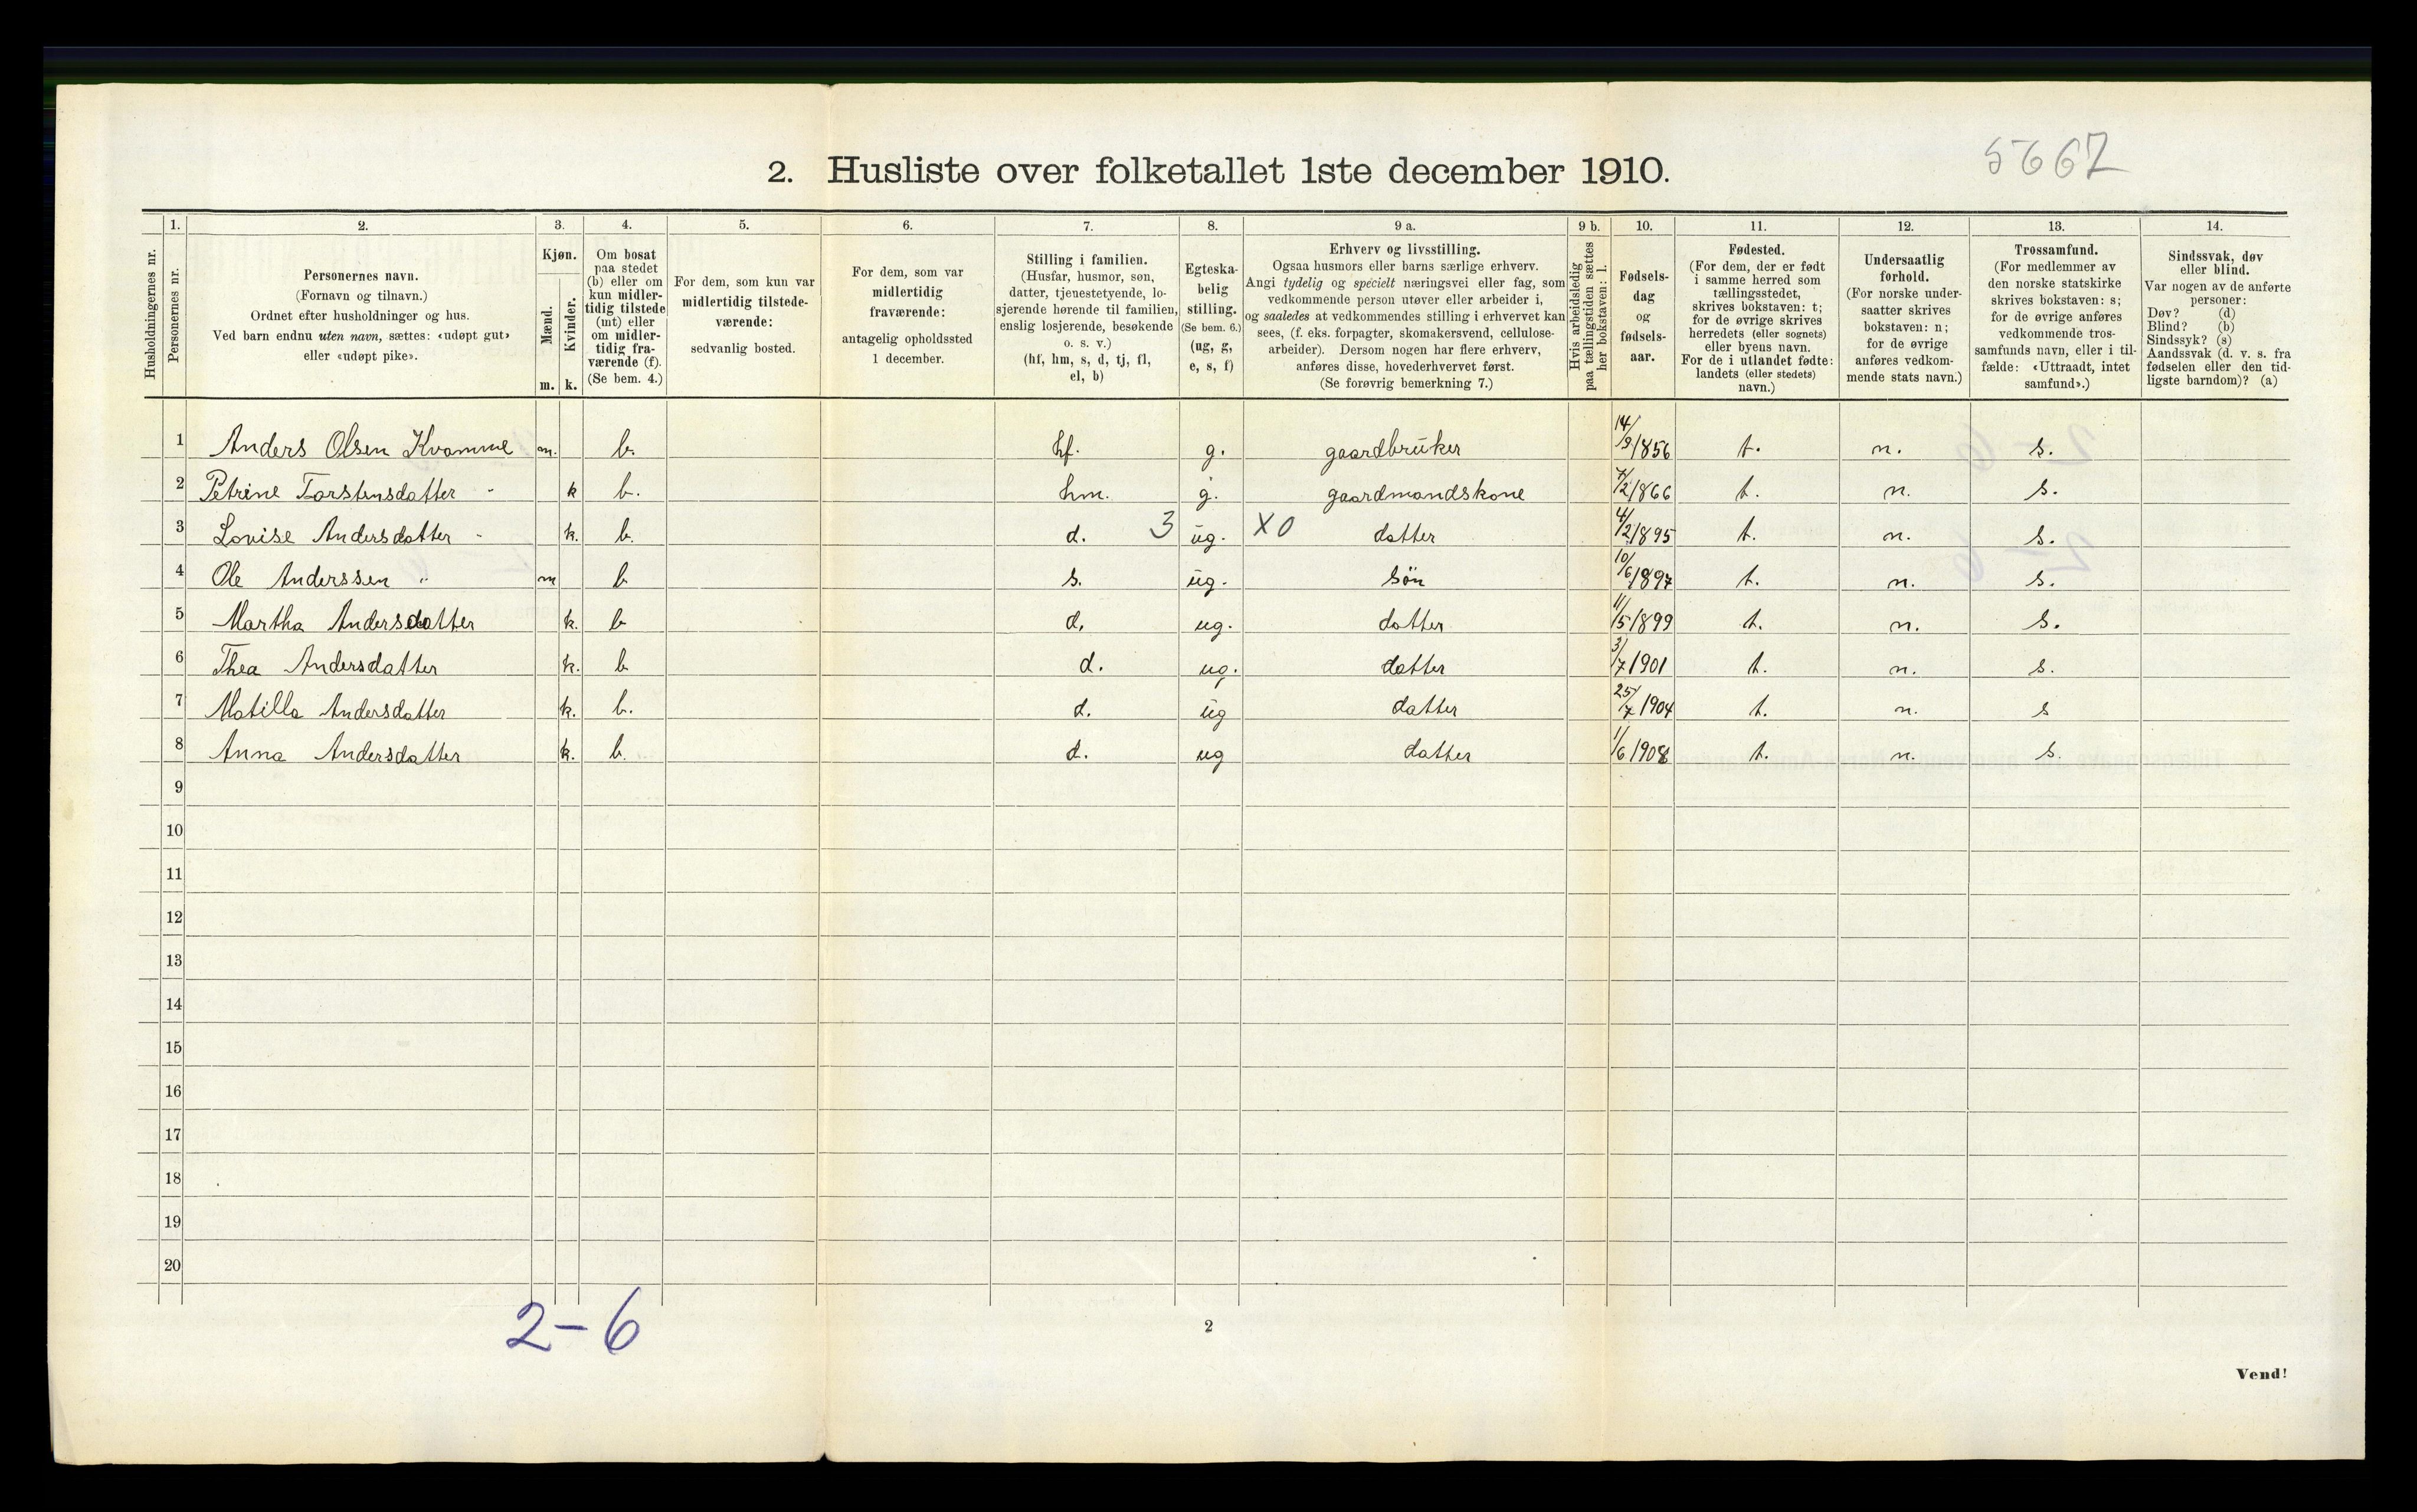 5667
2. Husliste over folketallet 1ste december 1910.
1. 2. 3. 4. 5. 6. 7. 8. 9 a. 9 b. 10. 11. 12. 13. 14.
Husholdningernes nr.
Personernes nr.
Personernes navn.
(Fornavn og tilnavn.)
Ordnet efter husholdninger og hus.
Ved barn endnu uten navn, sættes: «udøpt gut»
eller «udøpt pike».
Kjøn.
Mænd.
Kvinder.
m. k.
Om bosat
paa stedet
(b) eller om
kun midler-
tidig tilstede
(mt) eller
om midler-
tidig fra-
værende (f).
(Se bem. 4.)
For dem, som kun var
midlertidig tilstede-
værende:
sedvanlig bosted.
For dem, som var
midlertidig
fraværende:
antagelig opholdssted
1 december.
Stilling i familien.
(Husfar, husmor, søn,
datter, tjenestetyende, lo-
sjerende hørende til familien,
enslig losjerende, besøkende
o. s. v.)
(hf, hm, s, d, tj, fl,
el, b)
Egteska-
belig
stilling.
(Se bem. 6.)
(ug, g,
e, s, f)
Erhverv og livsstilling.
Ogsaa husmors eller barns særlige erhverv.
Angi tydelig og specielt næringsvei eller fag, som
vedkommende person utøver eller arbeider i,
og saaledes at vedkommendes stilling i erhvervet kan
sees, (f. eks. forpagter, skomakersvend, cellulose-
arbeider). Dersom nogen har flere erhverv,
anføres disse, hovederhvervet først.
(Se forøvrig bemerkning 7.)
Hvis arbeidsledig
paa tællingstiden sættes
her bokstaven: l.
Fødsels-
dag
og
fødsels-
aar.
Fødested.
(For dem, der er født
i samme herred som
tællingsstedet,
skrives bokstaven: t;
for de øvrige skrives
herredets (eller sognets)
eller byens navn.
For de i utlandet fødte:
landets (eller stedets)
navn.)
Undersaatlig
forhold.
(For norske under-
saatter skrives
bokstaven: n;
for de øvrige
anføres vedkom-
mende stats navn.)
Trossamfund.
(For medlemmer av
den norske statskirke
skrives bokstaven: s;
for de øvrige anføres
vedkommende tros-
samfunds navn, eller i til-
fælde: «Uttraadt, intet
samfund».)
Sindssvak, døv
eller blind.
Var nogen av de anførte
personer:
Døv? (d)
Blind? (b)
Sindssyk? (s)
Aandssvak (d. v. s. fra
fødselen eller den tid-
ligste barndom)? (a)
1 Anders Olsen Kvamme m. b. hf. g. gaardbruker 14/9 1856 t. n. s.
2 Petrine Torstensdatter " k b. hm. g. gaardmandskone 7/2 1866 t. n. s.
3 Lovise Andersdatter " k. b. d. 3 ug. X0 datter 4/2 1895 t. n. s.
4 Ole Anderssen " m b s. ug. søn 10/6 1897 t. n. s.
5 Martha Andersdatter k. b d. ug. datter 11/5 1899 t. n. s.
6 Thea Andersdatter k. b d. ug. datter 3/7 1901 t. n. s.
7 Matilla Andersdatter k. b. d. ug datter 25/7 1904 t. n. s
8 Anna Andersdatter k. b. d. ug datter 1/6 1908 t. n. s.
9
10
11
12
13
14
15
16
17
18
19
20
2-6
2
Vend!